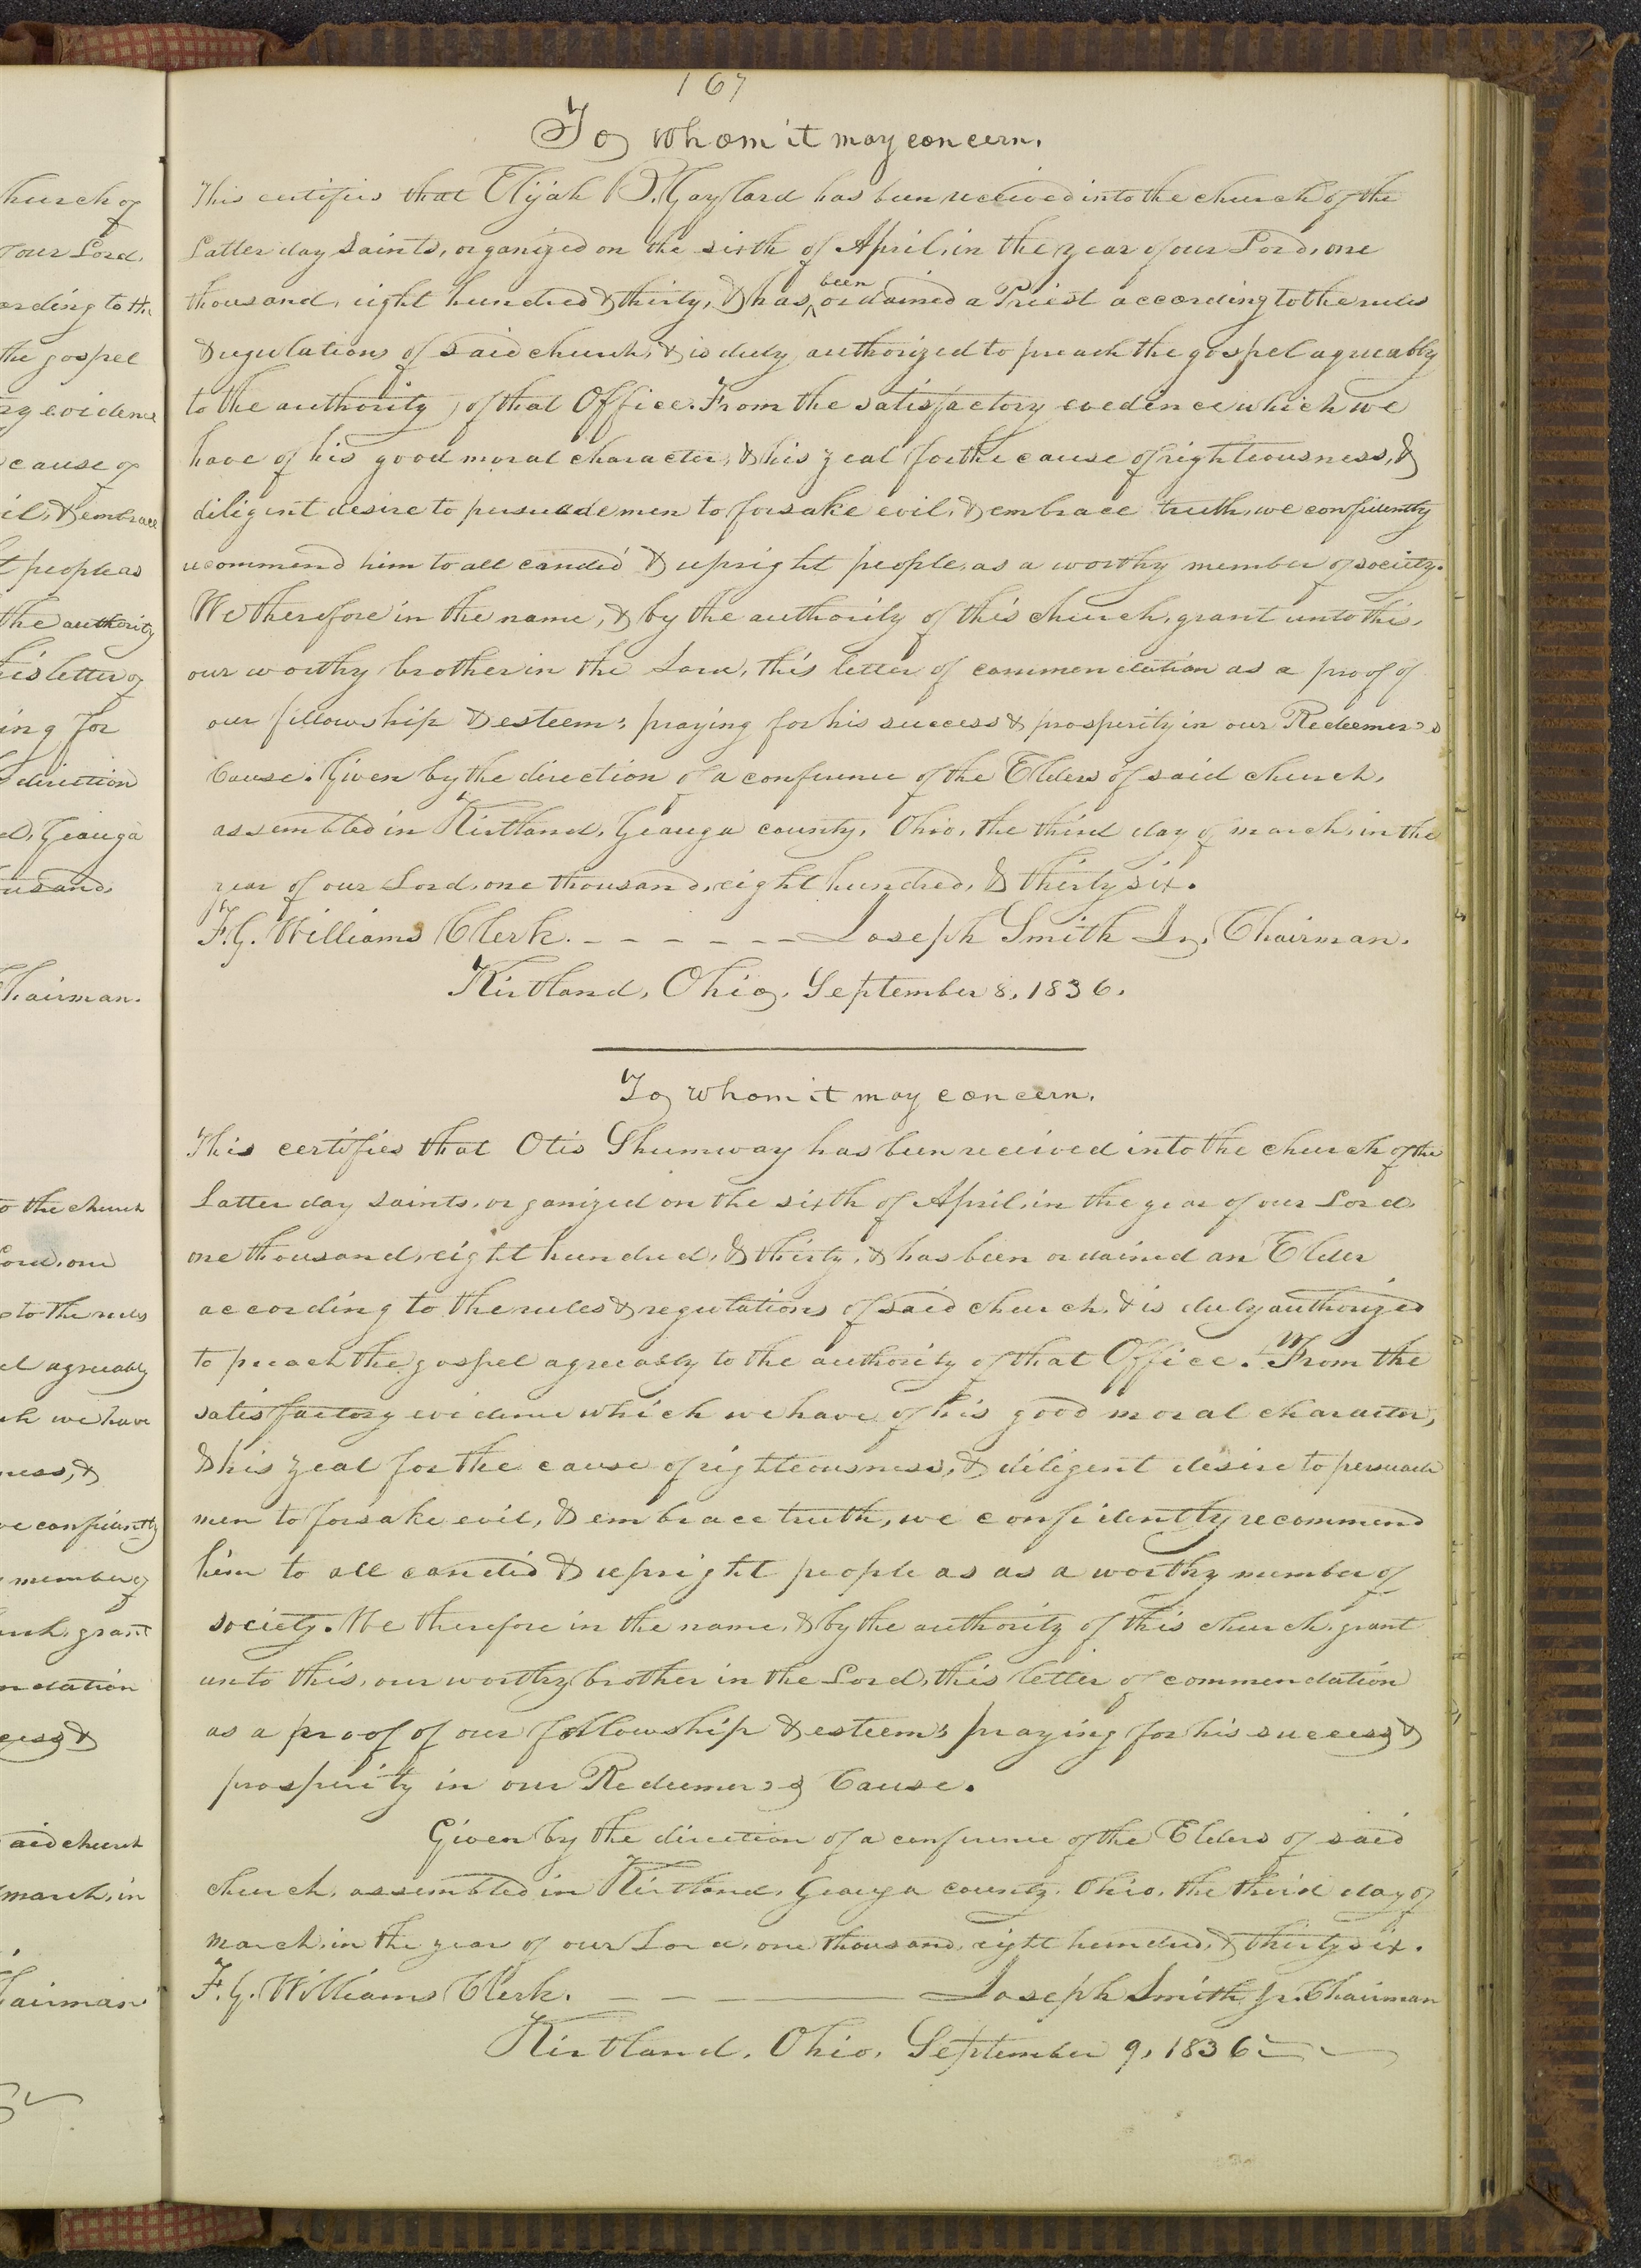 hurch of
our Lord,
ording to the
the gospel
ry evidence
cause of
il, & embrace
t people as
the authority
his letter of
ing for
direction
d, Geauga
ousand,
Chairman.
o the church
Lord, one
to the rules
el agreeably
ch we have
ness, &
we confidently
member of
urch, grant
ndation
cess &
aid church
march, in
airman
167
To whom it may concern.
This certifies that Elijah B. Gaylard has been received into the church of the
Latter day saints, organized on the sixth of April, in the year of our Lord, one
thousand, eight hundred & thirty, & has ^been ordained a Priest according to the rules
& regulations of said church, & is duly authorized to preach the gospel agreeably
to the authority, of that Office. From the satisfactory evedence which we
have of his good moral character, & his zeal for the cause of righteousness, &
diligent desire to persuade men to forsake evil, & embrace truth, we confidently
recommend him to all candid & upright people, as a worthy member of society.
We therefore in the name, & by the authority of this church, grant unto this,
our worthy brother in the Lord, this letter of commendation as a proof of
our fellowship & esteem; praying for his success & prosperity in our Redeemer's
Cause. Given by the direction of a conference of the Elders of said church,
assembled in Kirtland, Geauga county, Ohio, the third day of march, in the
year of our Lord, one thousand, eight hundred, & thirty six.
F. G. Williams Clerk. - - - - - - Joseph Smith Jr. Chairman.
Kirtland, Ohio, September 8, 1836.
To whom it may concern.
This certifies that Otis Shumway has been received into the church of the
Latter day saints, organized on the sixth of April, in the year of our Lord,
one thousand, eight hundred, & thirty, & has been ordained an Elder
according to the rules & regulations of said church, & is duly authorized
to preach the gospel agreeably to the authority of that Office. From the
satisfactory evidence which we have of his good moral character,
& his zeal for the cause of righteousness, & diligent desire to persuade
men to forsake evil, & embrace truth, we confidently recommend
him to all candid & upright people as as a worthy member of
society. We therefore in the name, & by the authority of this church, grant
unto this, our worthy brother in the Lord, this letter of commendation
as a proof of our fellowship & esteem; praying for his success &
prosperity in our Redeemer's Cause.
Given by the direction of a conference of the Elders of said
church, assembled in Kirtland, Geauga county, Ohio, the third day of
march, in the year of our Lord, one thousand, eight hundred, & thirty six.
F. G. Williams Clerk. - - — Joseph Smith Jr. Chairman
Kirtland, Ohio, September 9, 1836